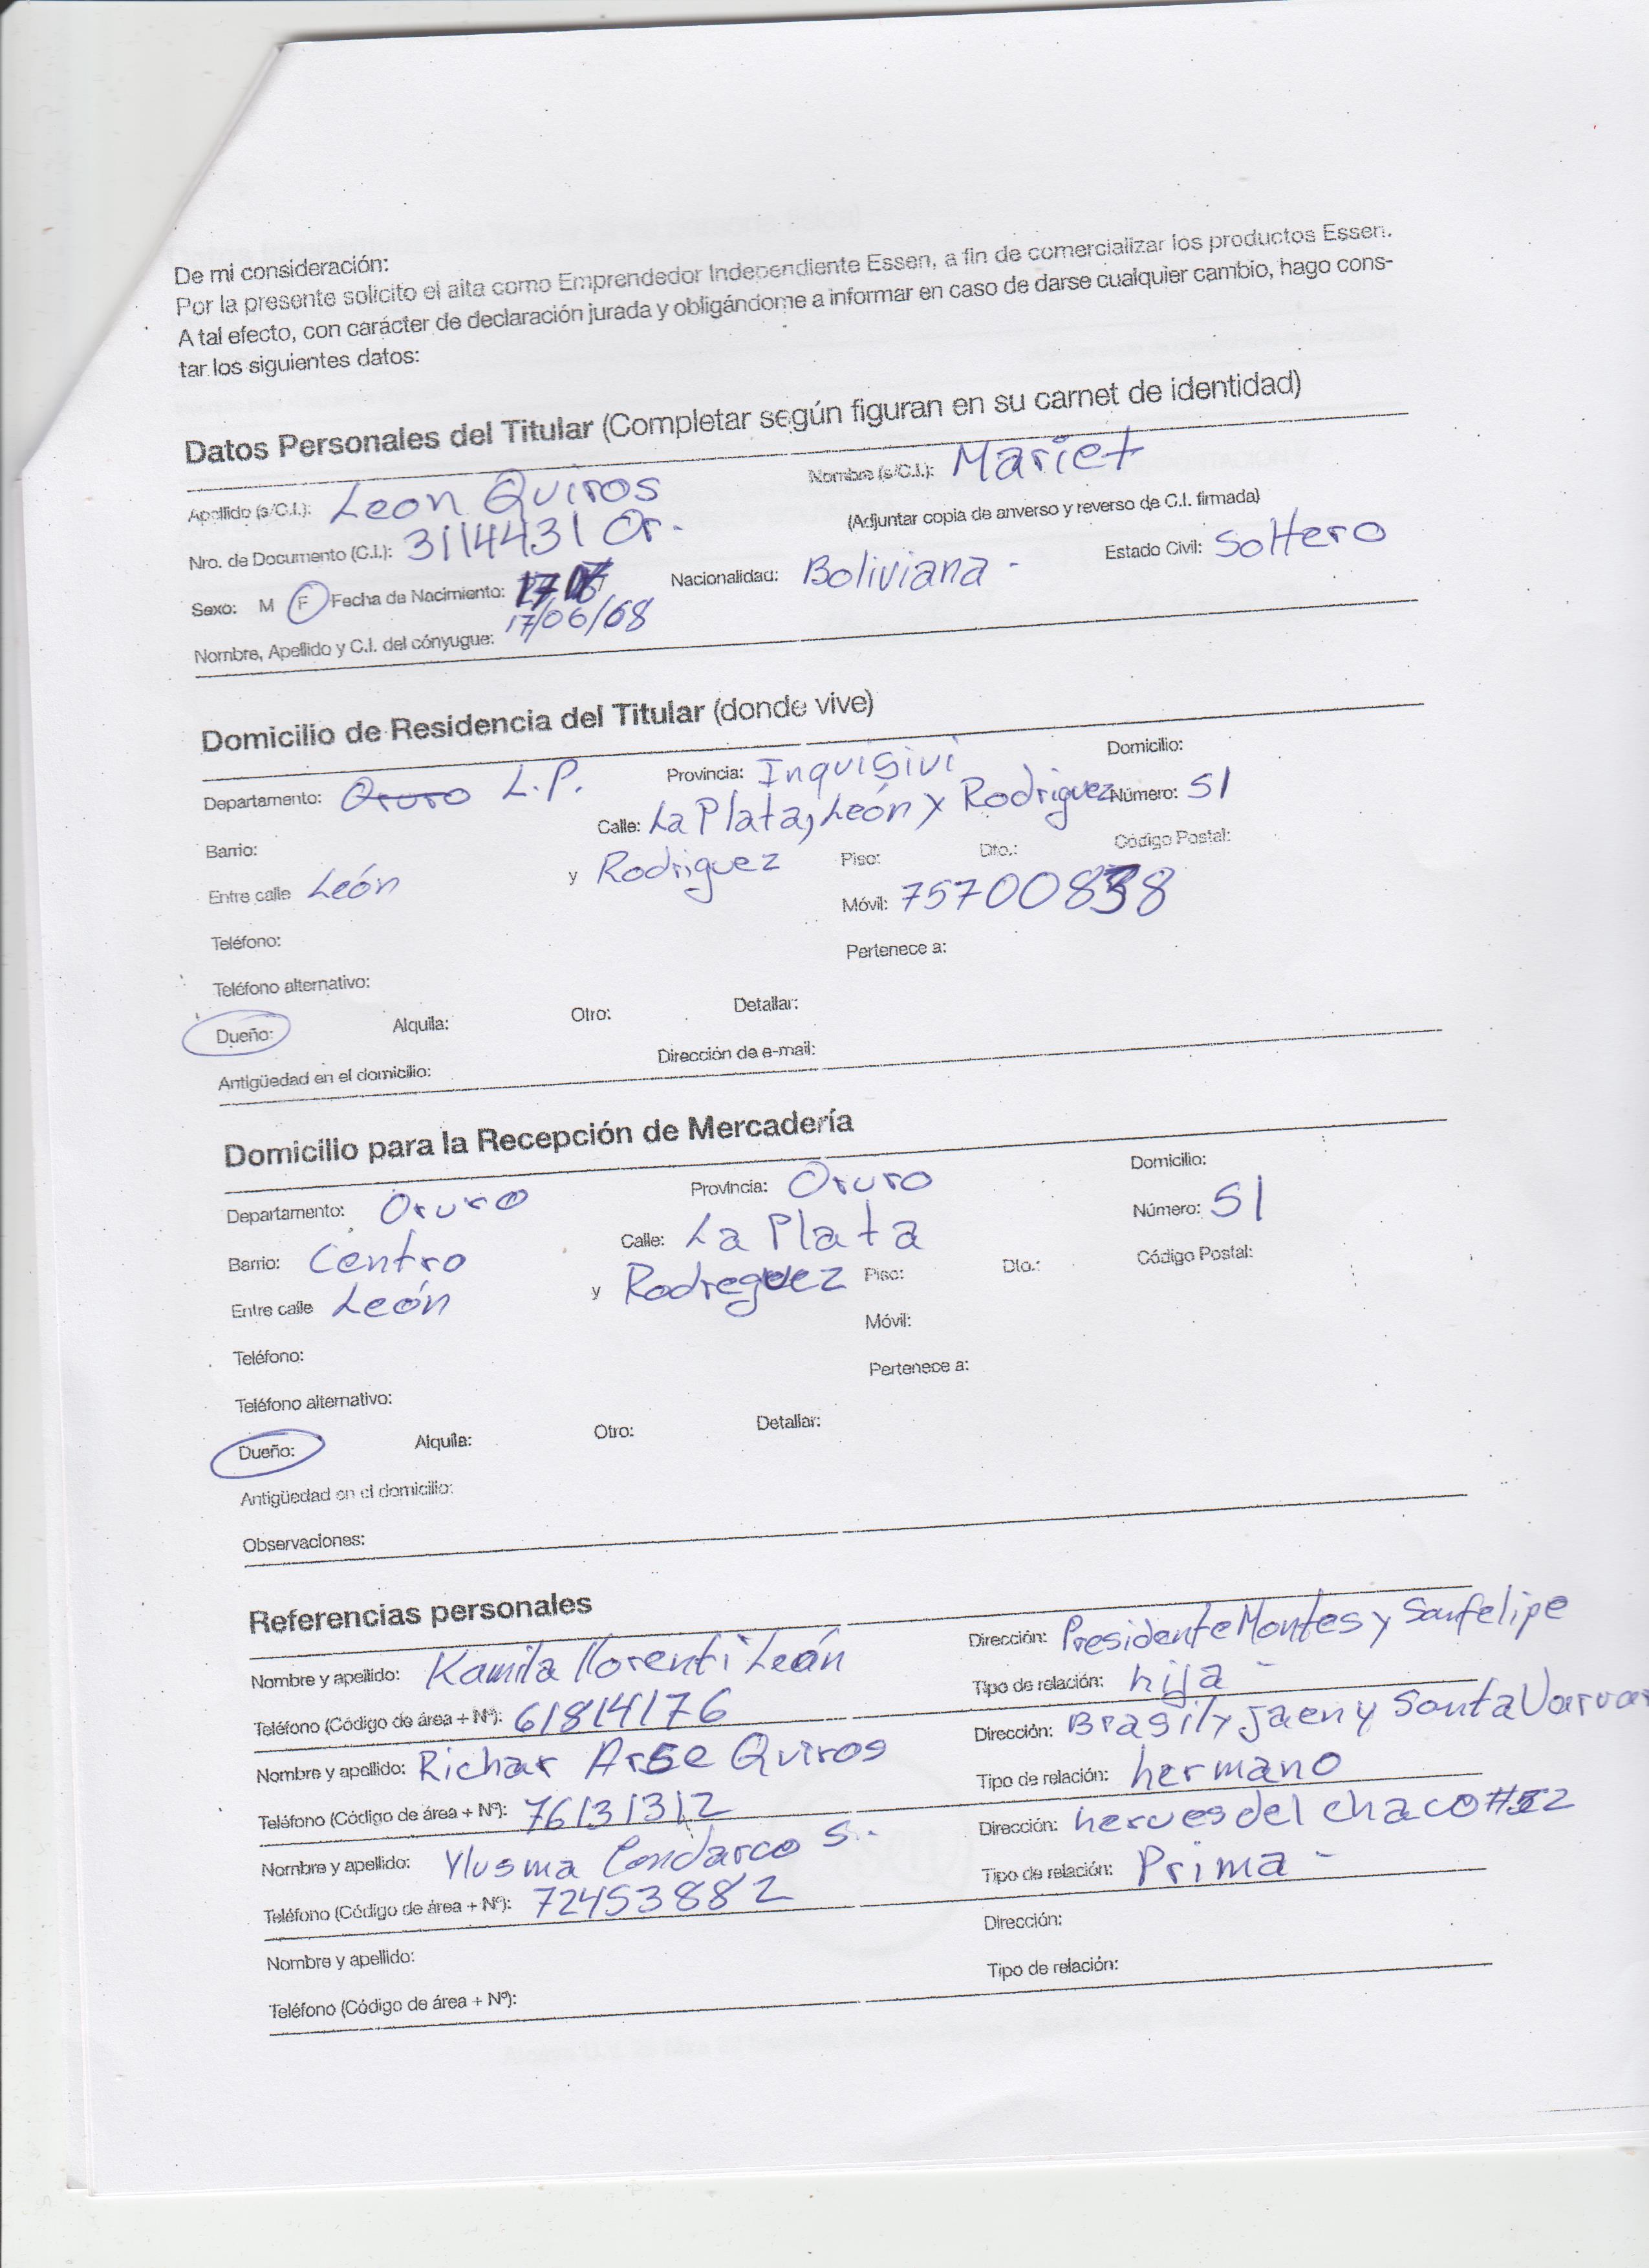 De mi consideración:
Por la presente solicito el alta como Emprendedor Independiente Essen, a fin de comercializar los productos Essen.
A tal efecto, con carácter de declaración jurada y obligándome a informar en caso de darse cualquier cambio, hago cons-
tar los siguientes datos:
Datos Personales del Titular (Completar según figuran en su carnet de identidad)
Apellido (s/C.I.): Leon Quiros Nombre (s/C.I.): Mariet
Nro. de Documento (C.I.): 3114431 Or. (Adjuntar copia de anverso y reverso de C.I. firmada)
Sexo: M F Fecha de Nacimiento: 17/06/68 Nacionalidad: Boliviana - Estado Civil: Soltero
Nombre, Apellido y C.I. del cónyugue:
Domicilio de Residencia del Titular (donde vive)
Departamento: Oruro L.P. Provincia: Inquisivi Domicilio:
Barrio: Calle: La Plata, León y Rodriguez Número: 51
Entre calle León y Rodriguez Piso: Dto.: Código Postal:
Teléfono: Móvil: 75700838
Teléfono alternativo: Pertenece a:
Dueño: Alquila: Otro: Detallar:
Antigüedad en el domicilio: Dirección de e-mail:
Domicilio para la Recepción de Mercadería
Departamento: Oruro Provincia: Oruro Domicilio:
Barrio: Centro Calle: La Plata Número: 51
Entre calle León y Rodreguez Piso: Dto.: Código Postal:
Teléfono: Móvil:
Teléfono alternativo: Pertenece a:
Dueño: Alquila: Otro: Detallar:
Antigüedad en el domicilio:
Observaciones:
Referencias personales
Nombre y apellido: Kamila Llorenti León Dirección: Presidente Montes y San felipe
Teléfono (Código de área + Nº): 61814176 Tipo de relación: hija -
Nombre y apellido: Richar Arse Quiros Dirección: Brasil y Jaen y Santa
Teléfono (Código de área + Nº): 76131312 Tipo de relación: hermano
Nombre y apellido: Condarco S. - Dirección: heroes del chaco
Teléfono (Código de área + Nº): 72453882 Tipo de relación: Prima -
Nombre y apellido: Dirección:
Teléfono (Código de área + Nº): Tipo de relación: